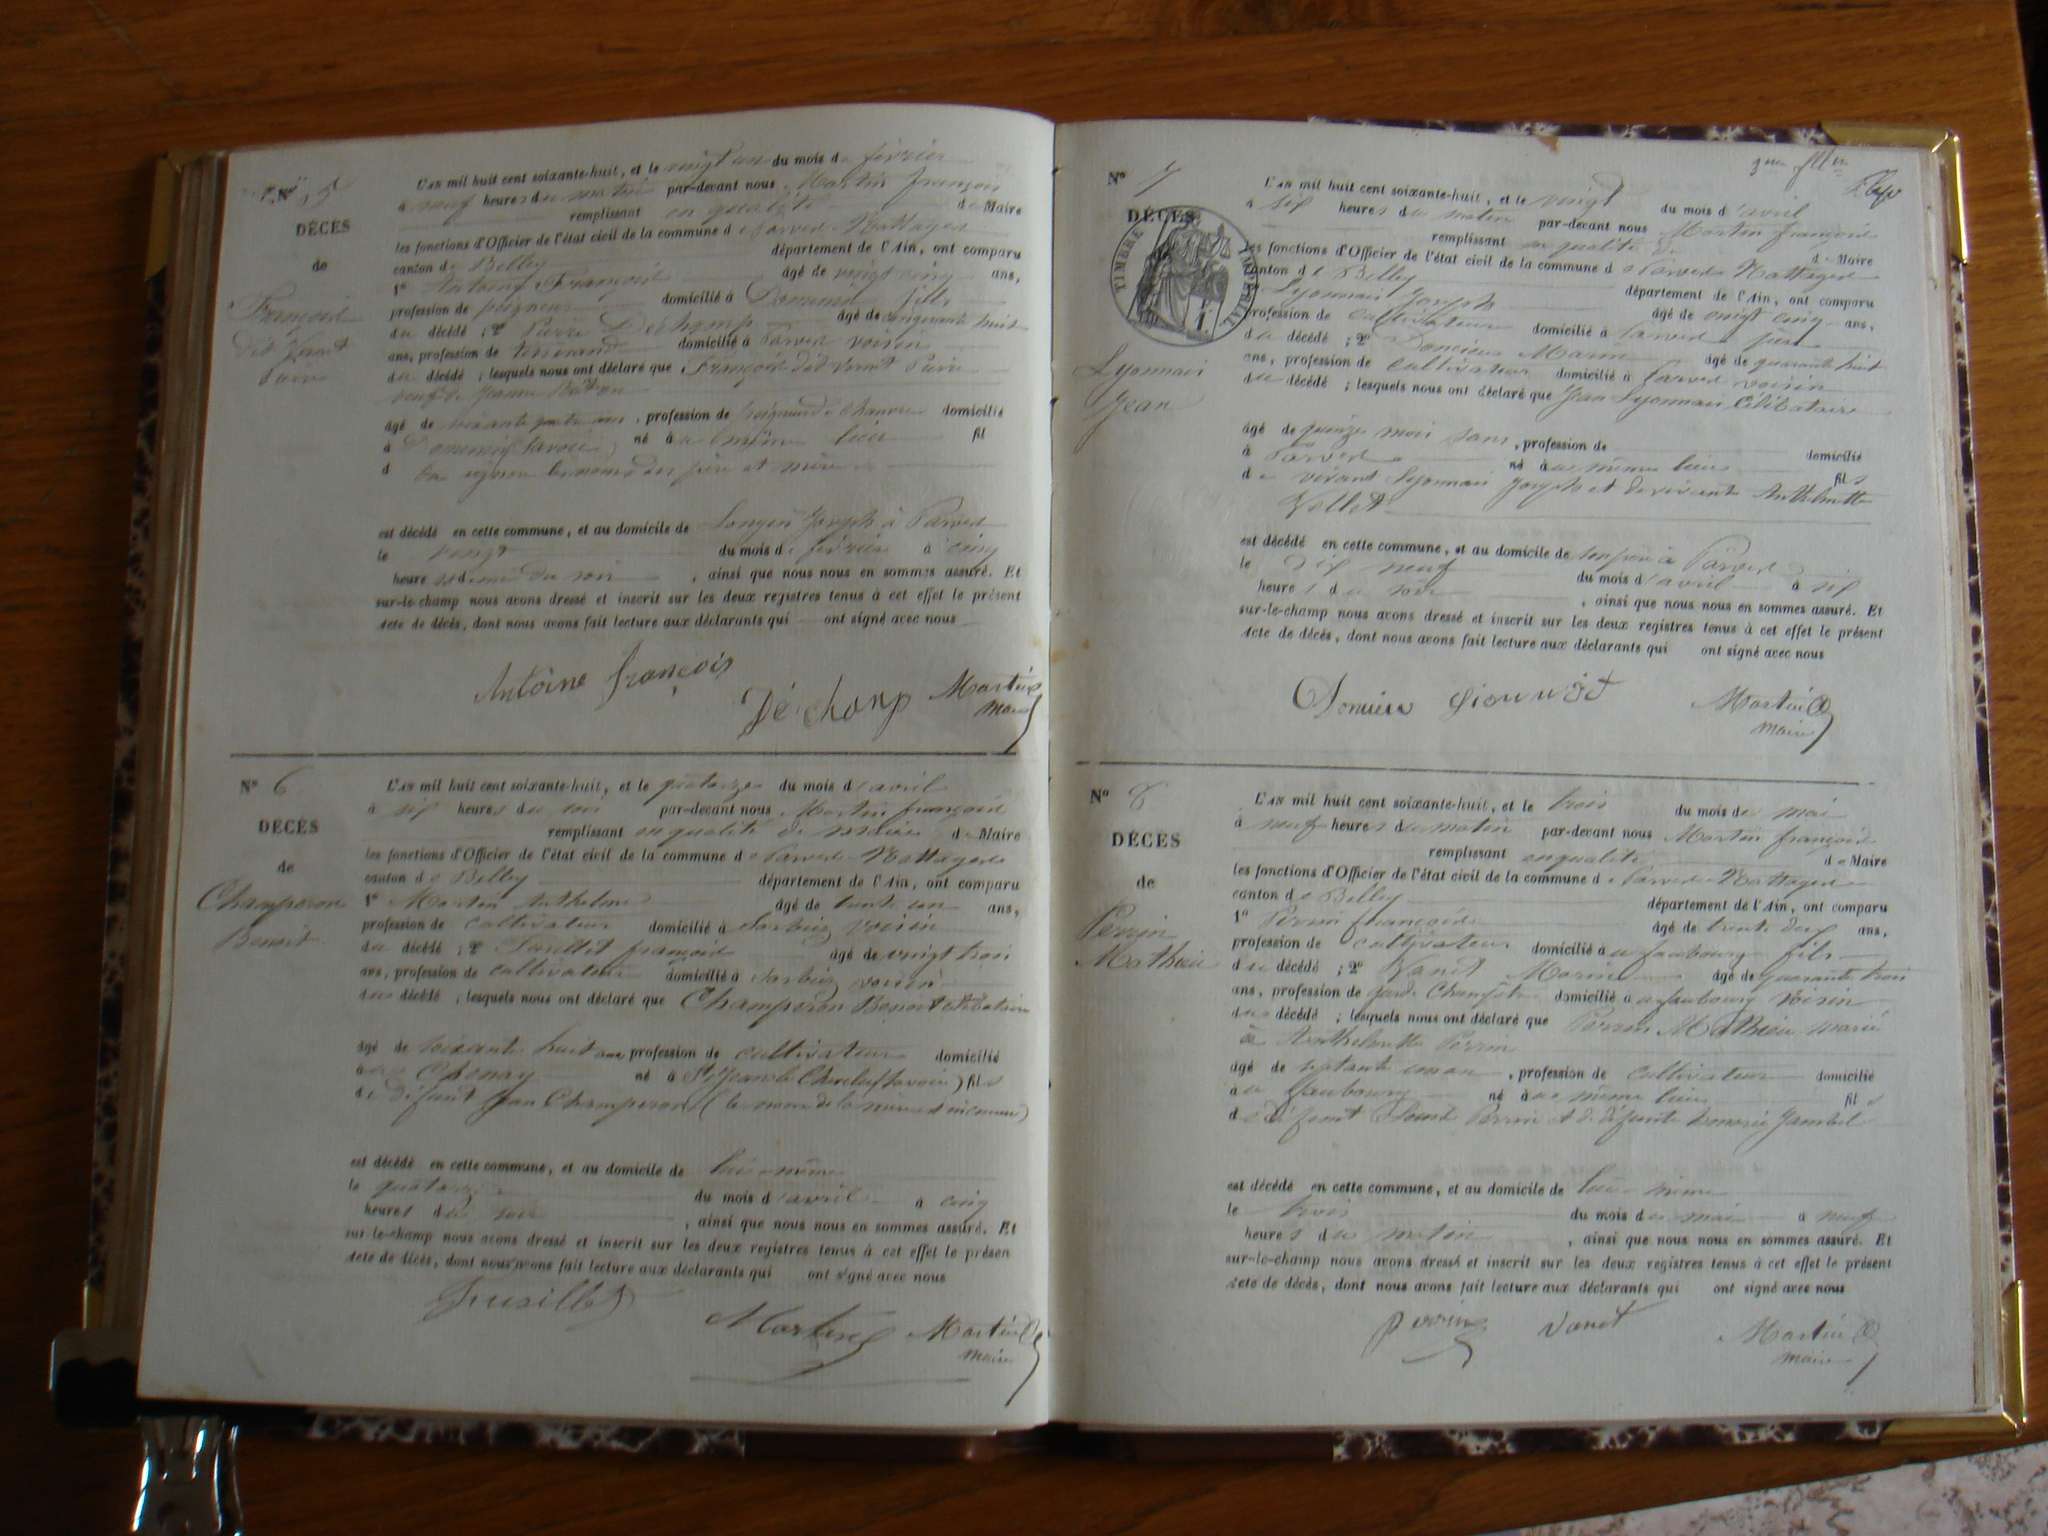 N° 5
DÉCÈS
de
François
dit Vernt
Pierre
L'AN mil huit cent soixante-huit, et le vingt un du mois de février
à neuf heures du matin par-devant nous Martin François
remplissant en qualité de Maire
les fonctions d'Officier de l'état civil de la commune de Parves-Nattages
canton de Belley département de l'Ain, ont comparu
1° Antoine François âgé de vingt cinq ans,
profession de peigneur domicilié à fils
du décédé ; 2° Pierre Déchamp âgé de cinquante huit
ans, profession de tisserand domicilié à Parves voisin
du décédé ; lesquels nous ont déclaré que François dit Pierre
veuf de Jeanne
âgé de soixante quatre ans, profession de peigneur de chanvre domicilié
à (Savoie) né à au même lieu fil
d les noms des père et mère
est décédé en cette commune, et au domicile de Joseph à Parves
le vingt du mois de février à cinq
heures du soir, ainsi que nous nous en sommes assuré. Et
sur-le-champ nous avons dressé et inscrit sur les deux registres tenus à cet effet le présent
acte de décès, dont nous avons fait lecture aux déclarants qui ont signé avec nous
Antoine françois Déchamp Martin
maire
N° 6
DÉCÈS
de
Champeron
Benoit
L'AN mil huit cent soixante-huit, et le quatorze du mois d'avril
à six heures du soir par-devant nous Martin françois
remplissant en qualité de maire de Maire
les fonctions d'Officier de l'état civil de la commune de Parves-Nattages
canton de Belley département de l'Ain, ont comparu
1° Martin Anthelme âgé de trente un ans,
profession de cultivateur domicilié à Sorbier voisin
du décédé ; 2° françois âgé de vingt trois
ans, profession de cultivateur domicilié à Sorbier voisin
du décédé ; lesquels nous ont déclaré que Champeron Benoit célibataire
âgé de soixante huit ans profession de cultivateur domicilié
à né à St Jean de Chevelu (Savoie) fils
de défunt Jean Champeron (le nom de la mère est inconnu)
est décédé en cette commune, et au domicile de lui-même
le quatorze du mois d'avril à cinq
heures du soir, ainsi que nous nous en sommes assuré. Et
sur-le-champ nous avons dressé et inscrit sur les deux registres tenus à cet effet le présen
acte de décès, dont nous avons fait lecture aux déclarants qui ont signé avec nous
Martin Martin
maire
N° 7
DÉCÈS
TIMBRE IMPÉRIAL
Lyonnais
Jean
L'AN mil huit cent soixante-huit, et le vingt du mois d'avril
à six heures du matin par-devant nous Martin françois
remplissant en qualité de de Maire
les fonctions d'Officier de l'état civil de la commune de Parves Nattages
canton de Belley département de l'Ain, ont comparu
Lyonnais Joseph âgé de vingt cinq ans,
profession de cultivateur domicilié à Parves père
du décédé ; 2° Marin âgé de quarante huit
ans, profession de cultivateur domicilié à Parves voisin
du décédé ; lesquels nous ont déclaré que Jean Lyonnais Célibataire
âgé de quinze mois sans, profession de domicilié
à Parves né à au même lieu fils
de vivant Lyonnais Joseph et de vivante Anthelmette
Vollet
est décédé en cette commune, et au domicile de son père à Parves
le dix neuf du mois d'avril à six
heures du soir, ainsi que nous nous en sommes assuré. Et
sur-le-champ nous avons dressé et inscrit sur les deux registres tenus à cet effet le présent
acte de décès, dont nous avons fait lecture aux déclarants qui ont signé avec nous
Martin
maire
N° 8
DÉCÈS
de
Perrin
Mathieu
L'AN mil huit cent soixante-huit, et le trois du mois de mai
à neuf heures du matin par-devant nous Martin françois
remplissant en qualité de Maire
les fonctions d'Officier de l'état civil de la commune de Parves-Nattages
canton de Belley département de l'Ain, ont comparu
1° Perrin françois âgé de trente deux ans,
profession de cultivateur domicilié à au faubourg fils
du décédé ; 2° Vanet Marin âgé de quarante trois
ans, profession de garde Champêtre domicilié à au faubourg voisin
du décédé ; lesquels nous ont déclaré que Perrin Mathieu marié
à Anthelmette Perrin
âgé de septante un an, profession de cultivateur domicilié
à au faubourg né à au même lieu fils
de défunt Perrin et de défunte
est décédé en cette commune, et au domicile de lui-même
le trois du mois de mai à neuf
heures du matin, ainsi que nous nous en sommes assuré. Et
sur-le-champ nous avons dressé et inscrit sur les deux registres tenus à cet effet le présent
acte de décès, dont nous avons fait lecture aux déclarants qui ont signé avec nous
perrin Vanet Martin
maire